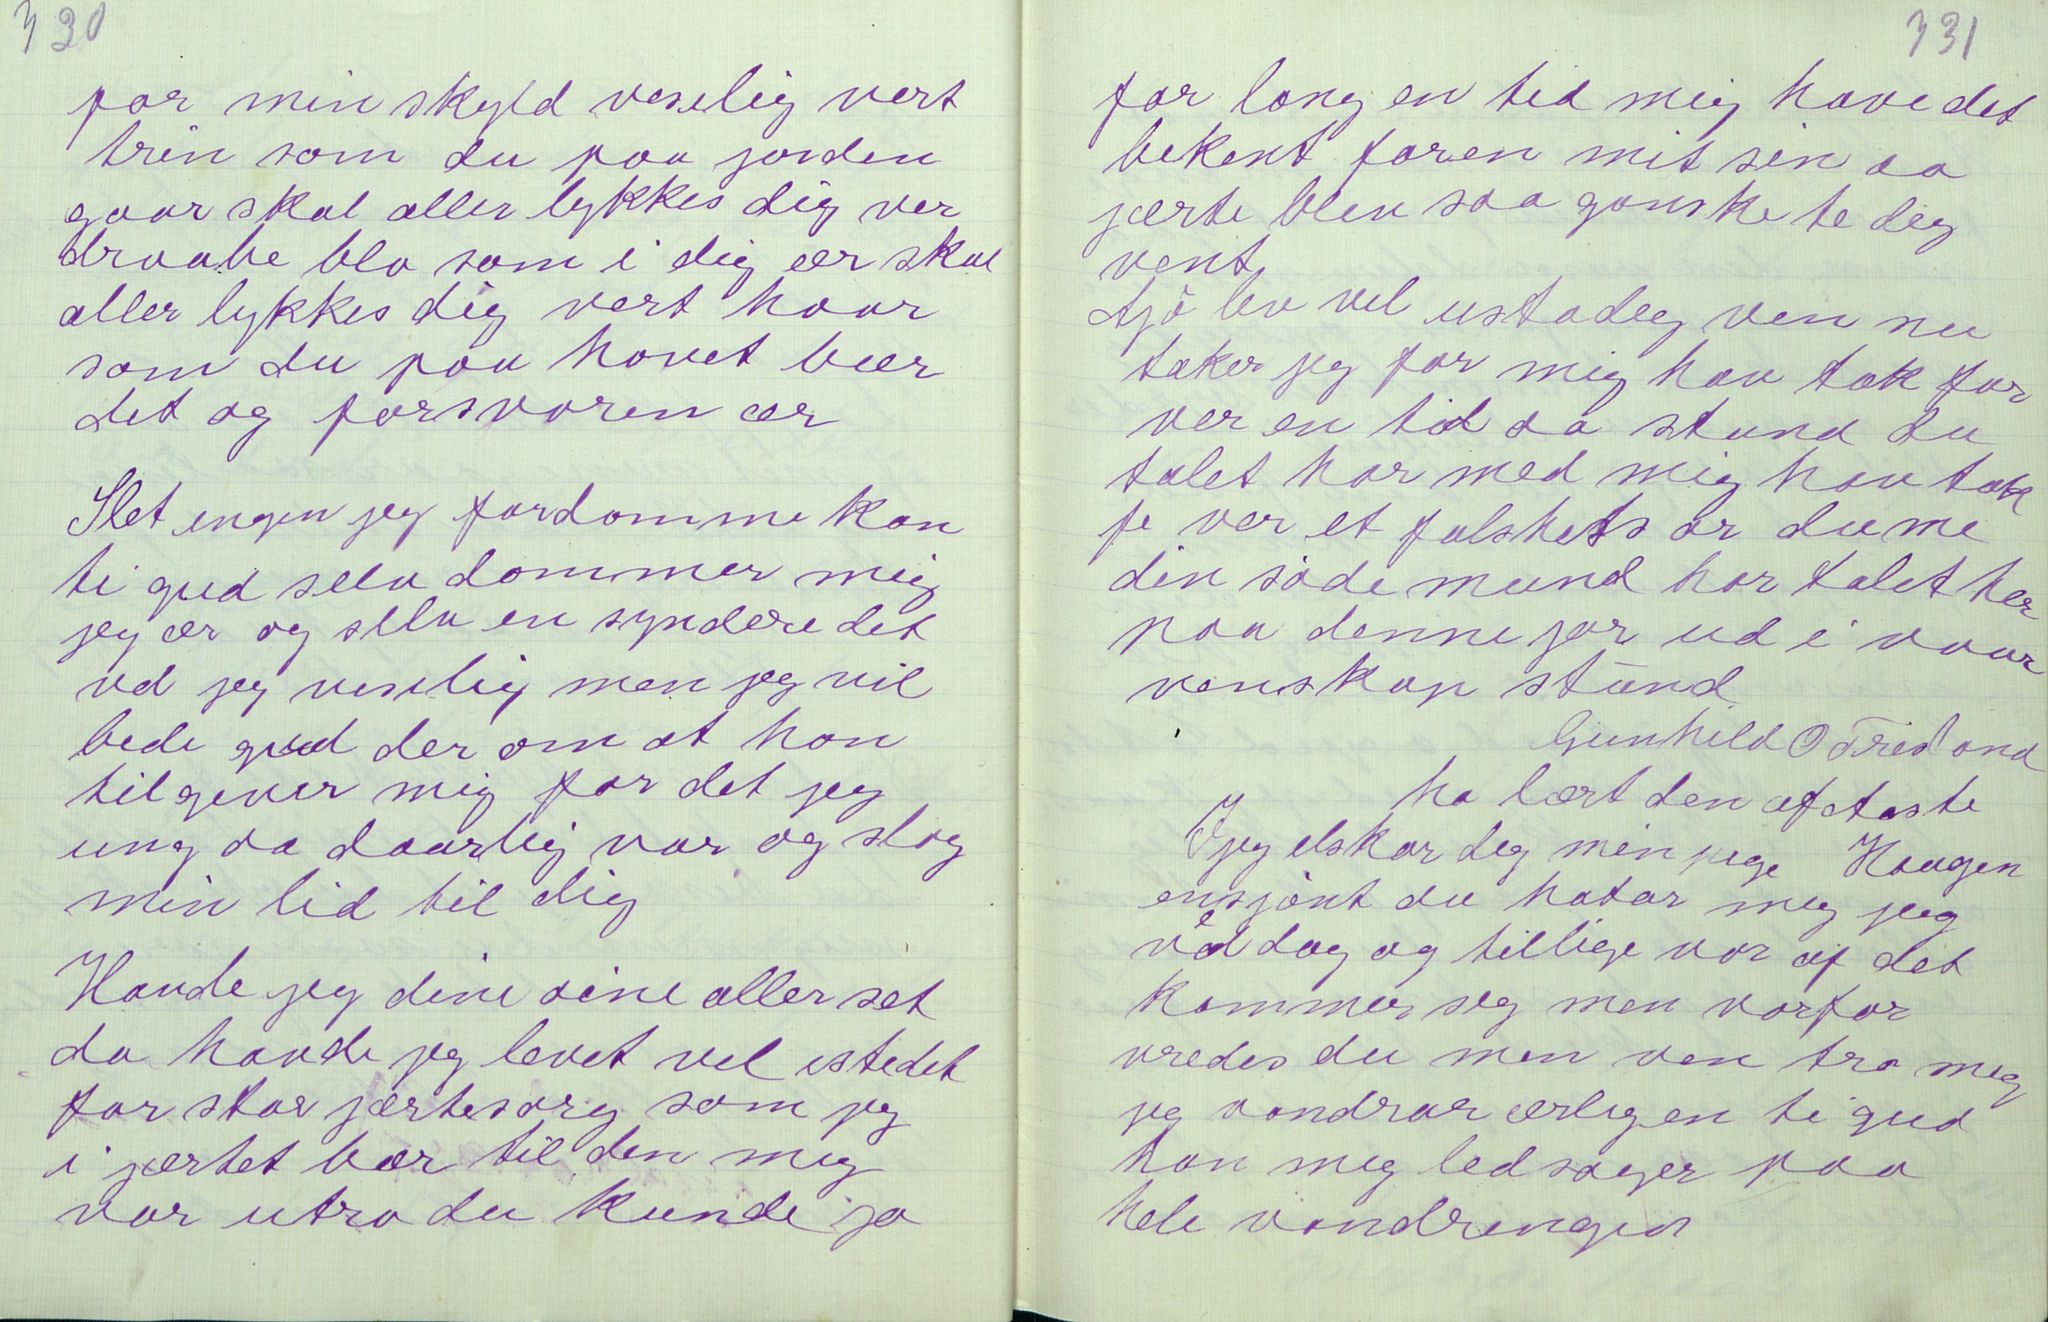 330
for min skyld veselig vert
trin som du paa jorden
gaar skal aller lykkes dig ver
draabe blo som i dig ær skal
aller lykkes dig vert haar
som du paa hovet bær
det og forsvoren ær
Slet engen jeg fordomme kan
ti gud selv dommer mig
jeg ær og selv en syndere det
ved jeg veselig men jeg vil
bede gud der om at han
tilgiver mig for det jeg
ung aa daarlig var og slog
min lid til dig
Havde jeg dine øine aller set
da havde jeg levet vel istedet
for stor jærtesorg som jeg
i jærtet bær til den mig
var utro du kunde jo
331
for long en tid mig have det
bekent foren mit sin aa
jærte blev saa ganske te dig
vent
Ajø lev vel ustadig ven nu
taker jeg for mig hav tak for
ver en tid aa stund du
talet har med mig hav tak
fe ver et falskets or du me
din søde mund har talet her
paa denne jor ud i vaar
venskap stund
Gunhild O Tredond
ha lært den af Aaste
Haagen
Jeg elskar deg min pige
ensjønt du hatar meg jeg
ved dag og tillige vor af det
kommer seg men vorfor
vredes du men ven tro meg
jeg vandrar ærlig en ti gud
han meg ledsager paa
hele vandringen